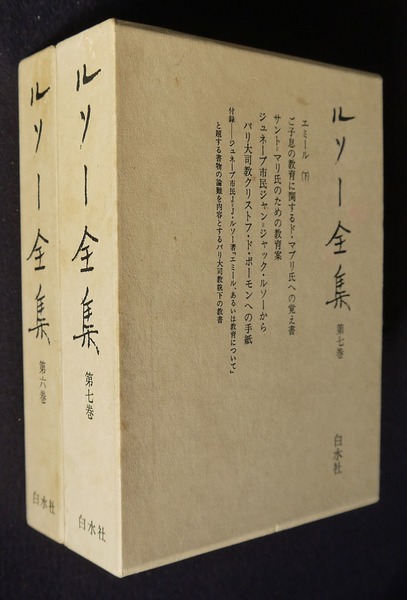 ルソー全集
第七巻
白水社
エミール〔下〕
ご子息の教育に関するド・マブリ氏への覚え書
サント=マリ氏のための教育案
ジュネーブ市民ジャン=ジャック・ルソーから
パリ大司教クリストフ・ド・ボーモンへの手紙
付録──ジュネーブ市民J=J・ルソー著『エミール、あるいは教育について』
と題する書物の論難を内容とするパリ大司教猊下の教書
ルソー全集
第七巻
白水社
ルソー全集
第六巻
白水社